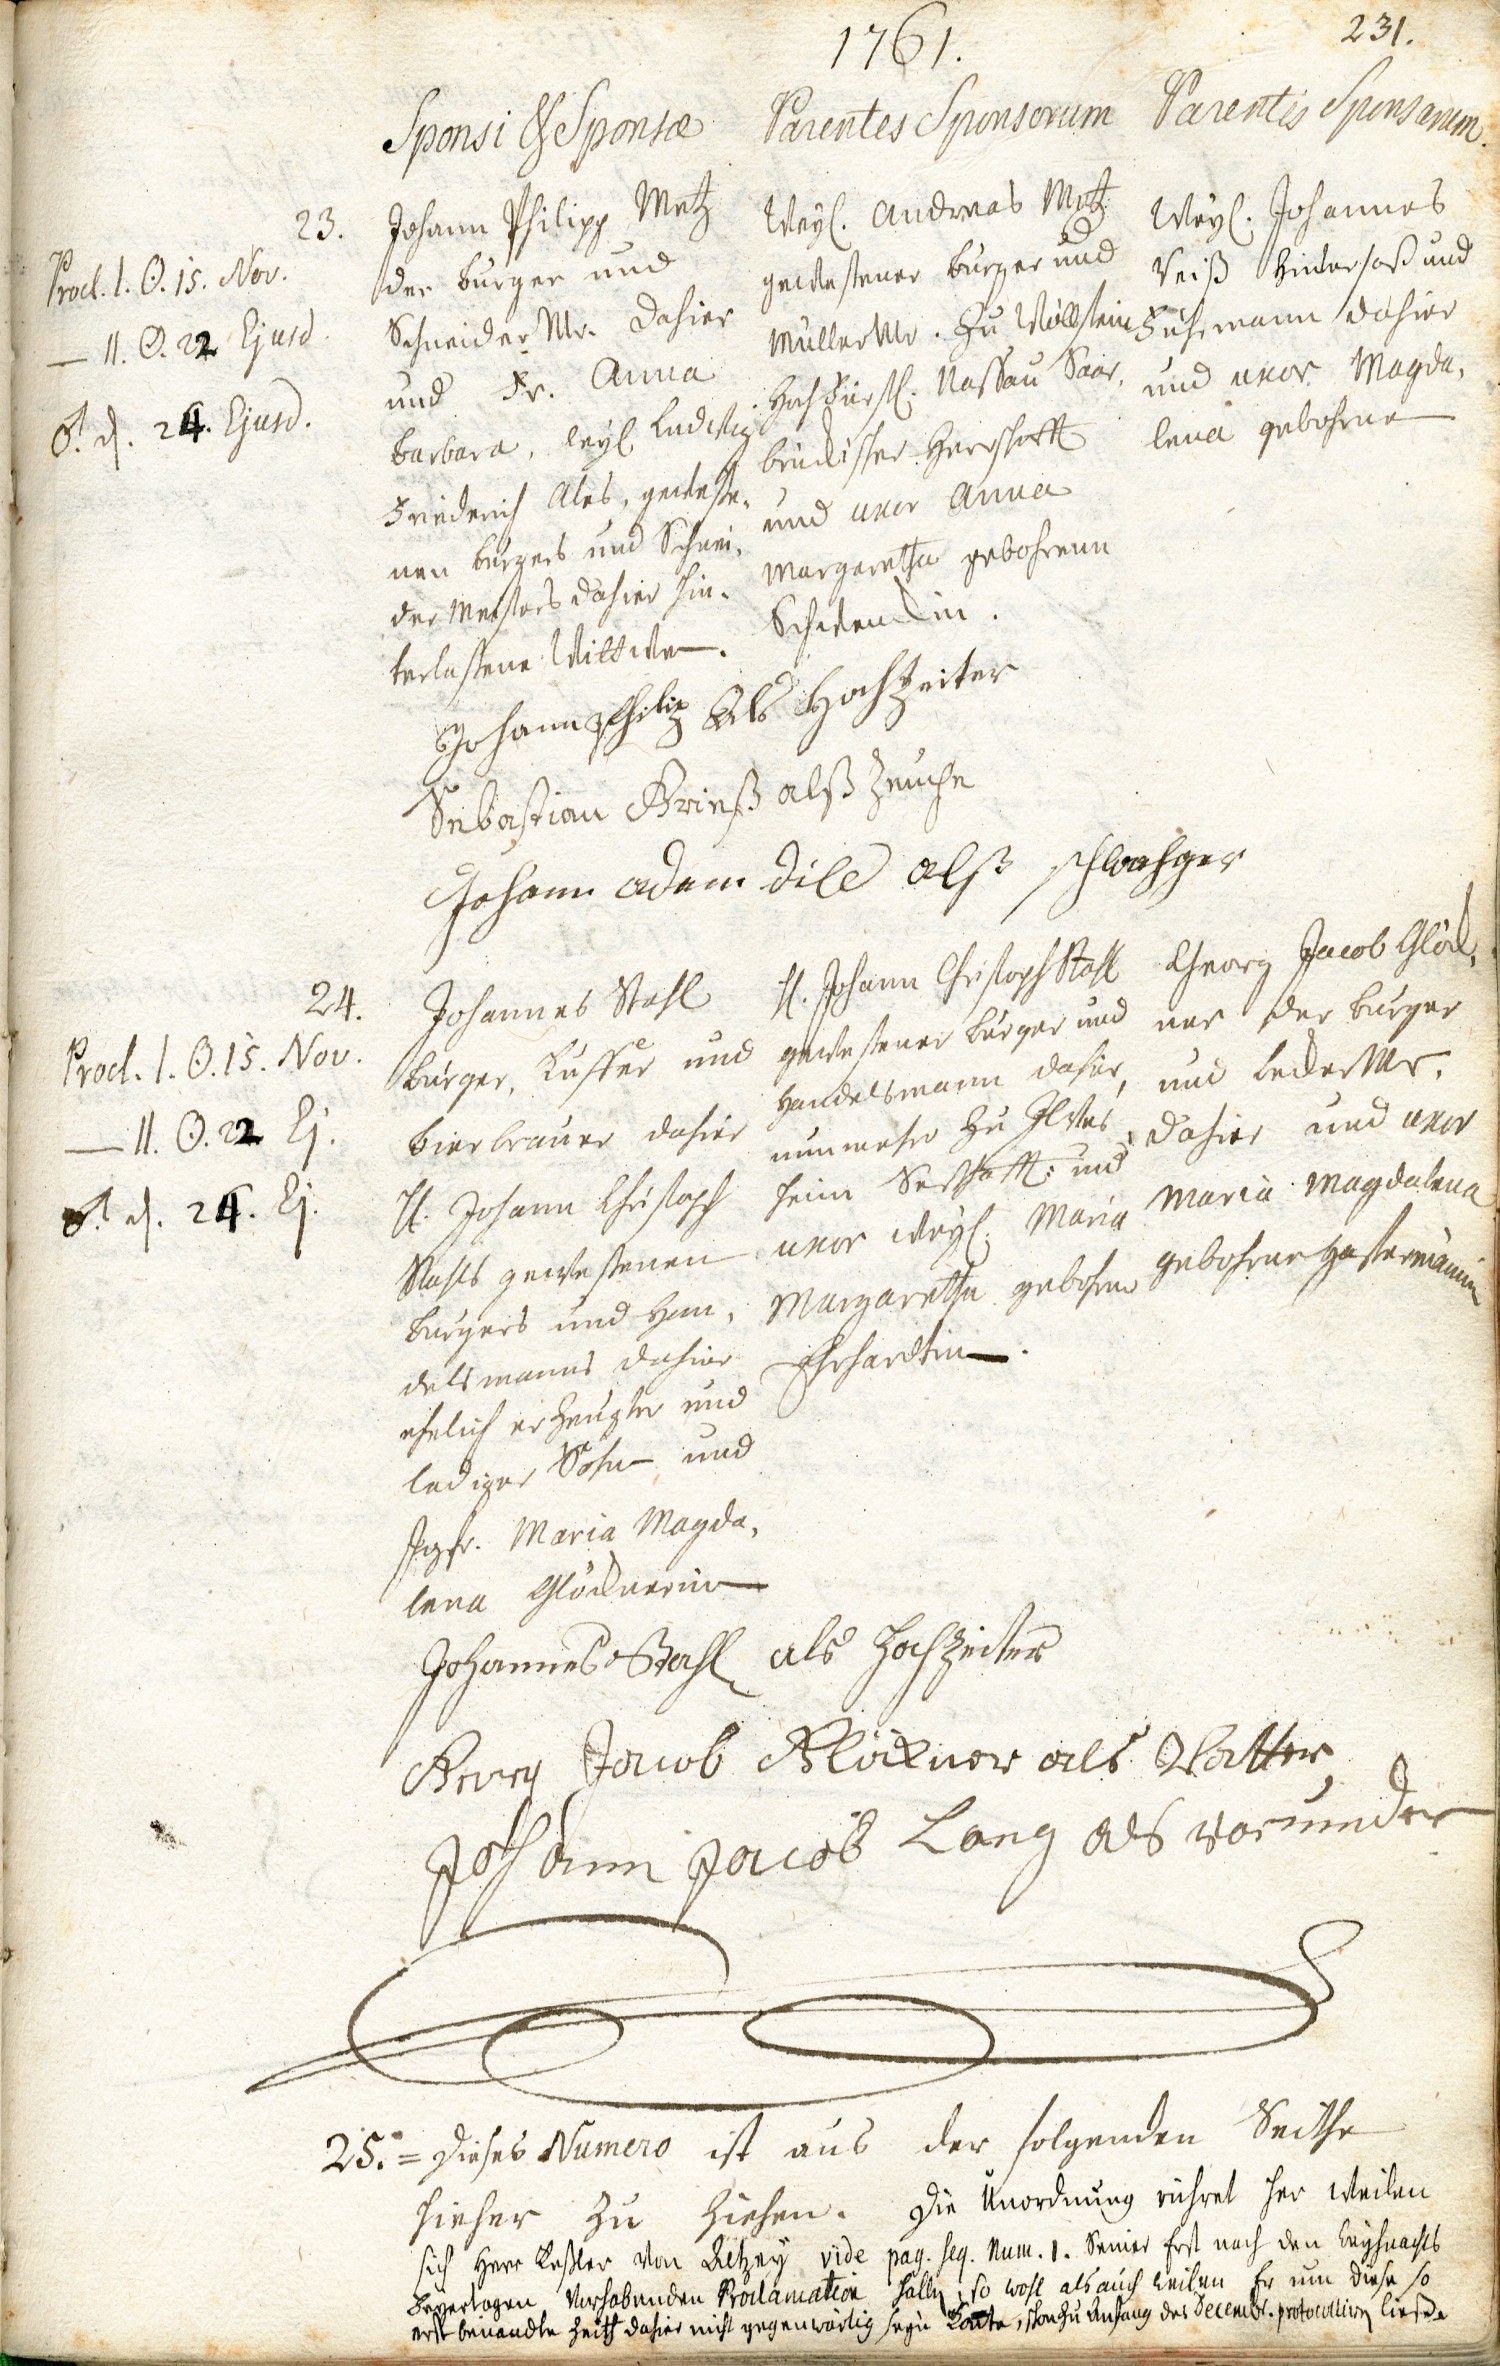 1761.
231.
Sponsi & Sponsæ
Parentes Sponsorum
Parentes Sponsarum.
23.
Procl. 1. O. 15. Nov.
— 11. O. 22 Ejusd.
d. 24. Ejusd.
Johann Philipp Metz
der burger und
Schneider Mr. dahier
und Fr. Anna
barbara, weyl. Ludwig
Friederich Abs, geweße-
nen burgers und Schnei-
der Meisters dahier hin-
terlaßene Wittwe.
Weyl. Andreas Metz
geweßener burger und
Müller Mr. zu Wöllstein
HochFürstl. Naßau Saar-
brückischer Herrschafft
und uxor Anna
Margaretha gebohrene
Schwenckin.
Weyl. Johannes
Veiß Hindersaß und
Fuhrmann dahier
und uxor Magda-
lena gebohrne
Johann Philip als Hochzeiter
Sebastian Brieß alß Zeuche
Johann adam dile alß schwahger
24.
Procl. 1. O. 15. Nov.
— 11. O. 22 Ej.
d. 24. Ej.
Johannes Stahl
burger, Küffer und
bierbrauer dahier
H. Johann Christoph
Stahls geweßenen
burgers und Han-
delsmanns dahier
ehelich erzeugter und
lediger Sohn und
Jgfr. Maria Magda-
lena Glöcknerin
H. Johann Christoph Stahl
geweßener burger und
Handelsmann dahier,
nunmehro zu Ilves-
heim Seßhafft: und
uxor weyl. Maria
Margaretha gebohrne
Ehrhardtin.
Georg Jacob Glöck-
ner der burger
und beckerMr.
dahier und uxor
Maria Magdalena
gebohrne Hastermännin
Johannes Stahl als Hochzeiter
Georg Jacob Glöckner als Vatter
Johann Jacob Lang als vormunder
25. = Dieses Numero ist aus der folgenden Seithe
hieher zu ziehen. Die Unordnung rühret her weilen
sich Herr Keßler von Altzey vide pag. seq. Num. 1. Seiner Erst nach den Weyhnachts
Feyertagen Vorhabenden Proclamation halber so wohl als auch weilen Er um diese so
erst benandte Zeith dahier nicht gegenwärtig seyn konte, schon zu Anfang des Decembr. protocolliren ließe.